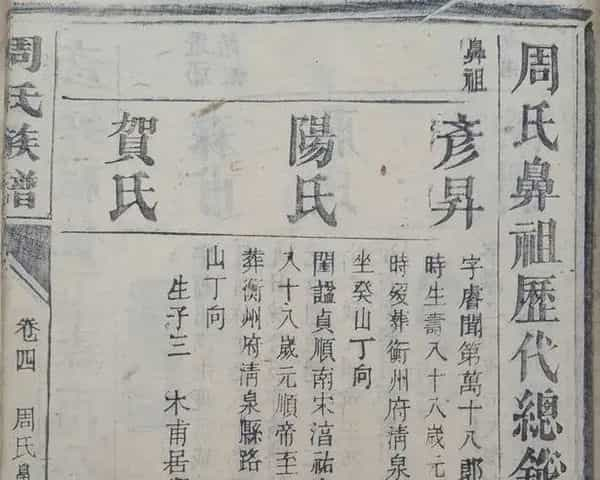 周氏鼻祖歷代總
鼻祖
彥昇
字膚聞第萬十八郎
時生壽八十八歲元
時歿葬衡州府清泉
坐癸山丁向
陽氏
閨諡貞順南宋淳祐
八十八歲元順帝至
葬衡州府清泉縣路
山丁向
賀氏
生子三 木甫居
周氏族譜
卷四 周氏鼻